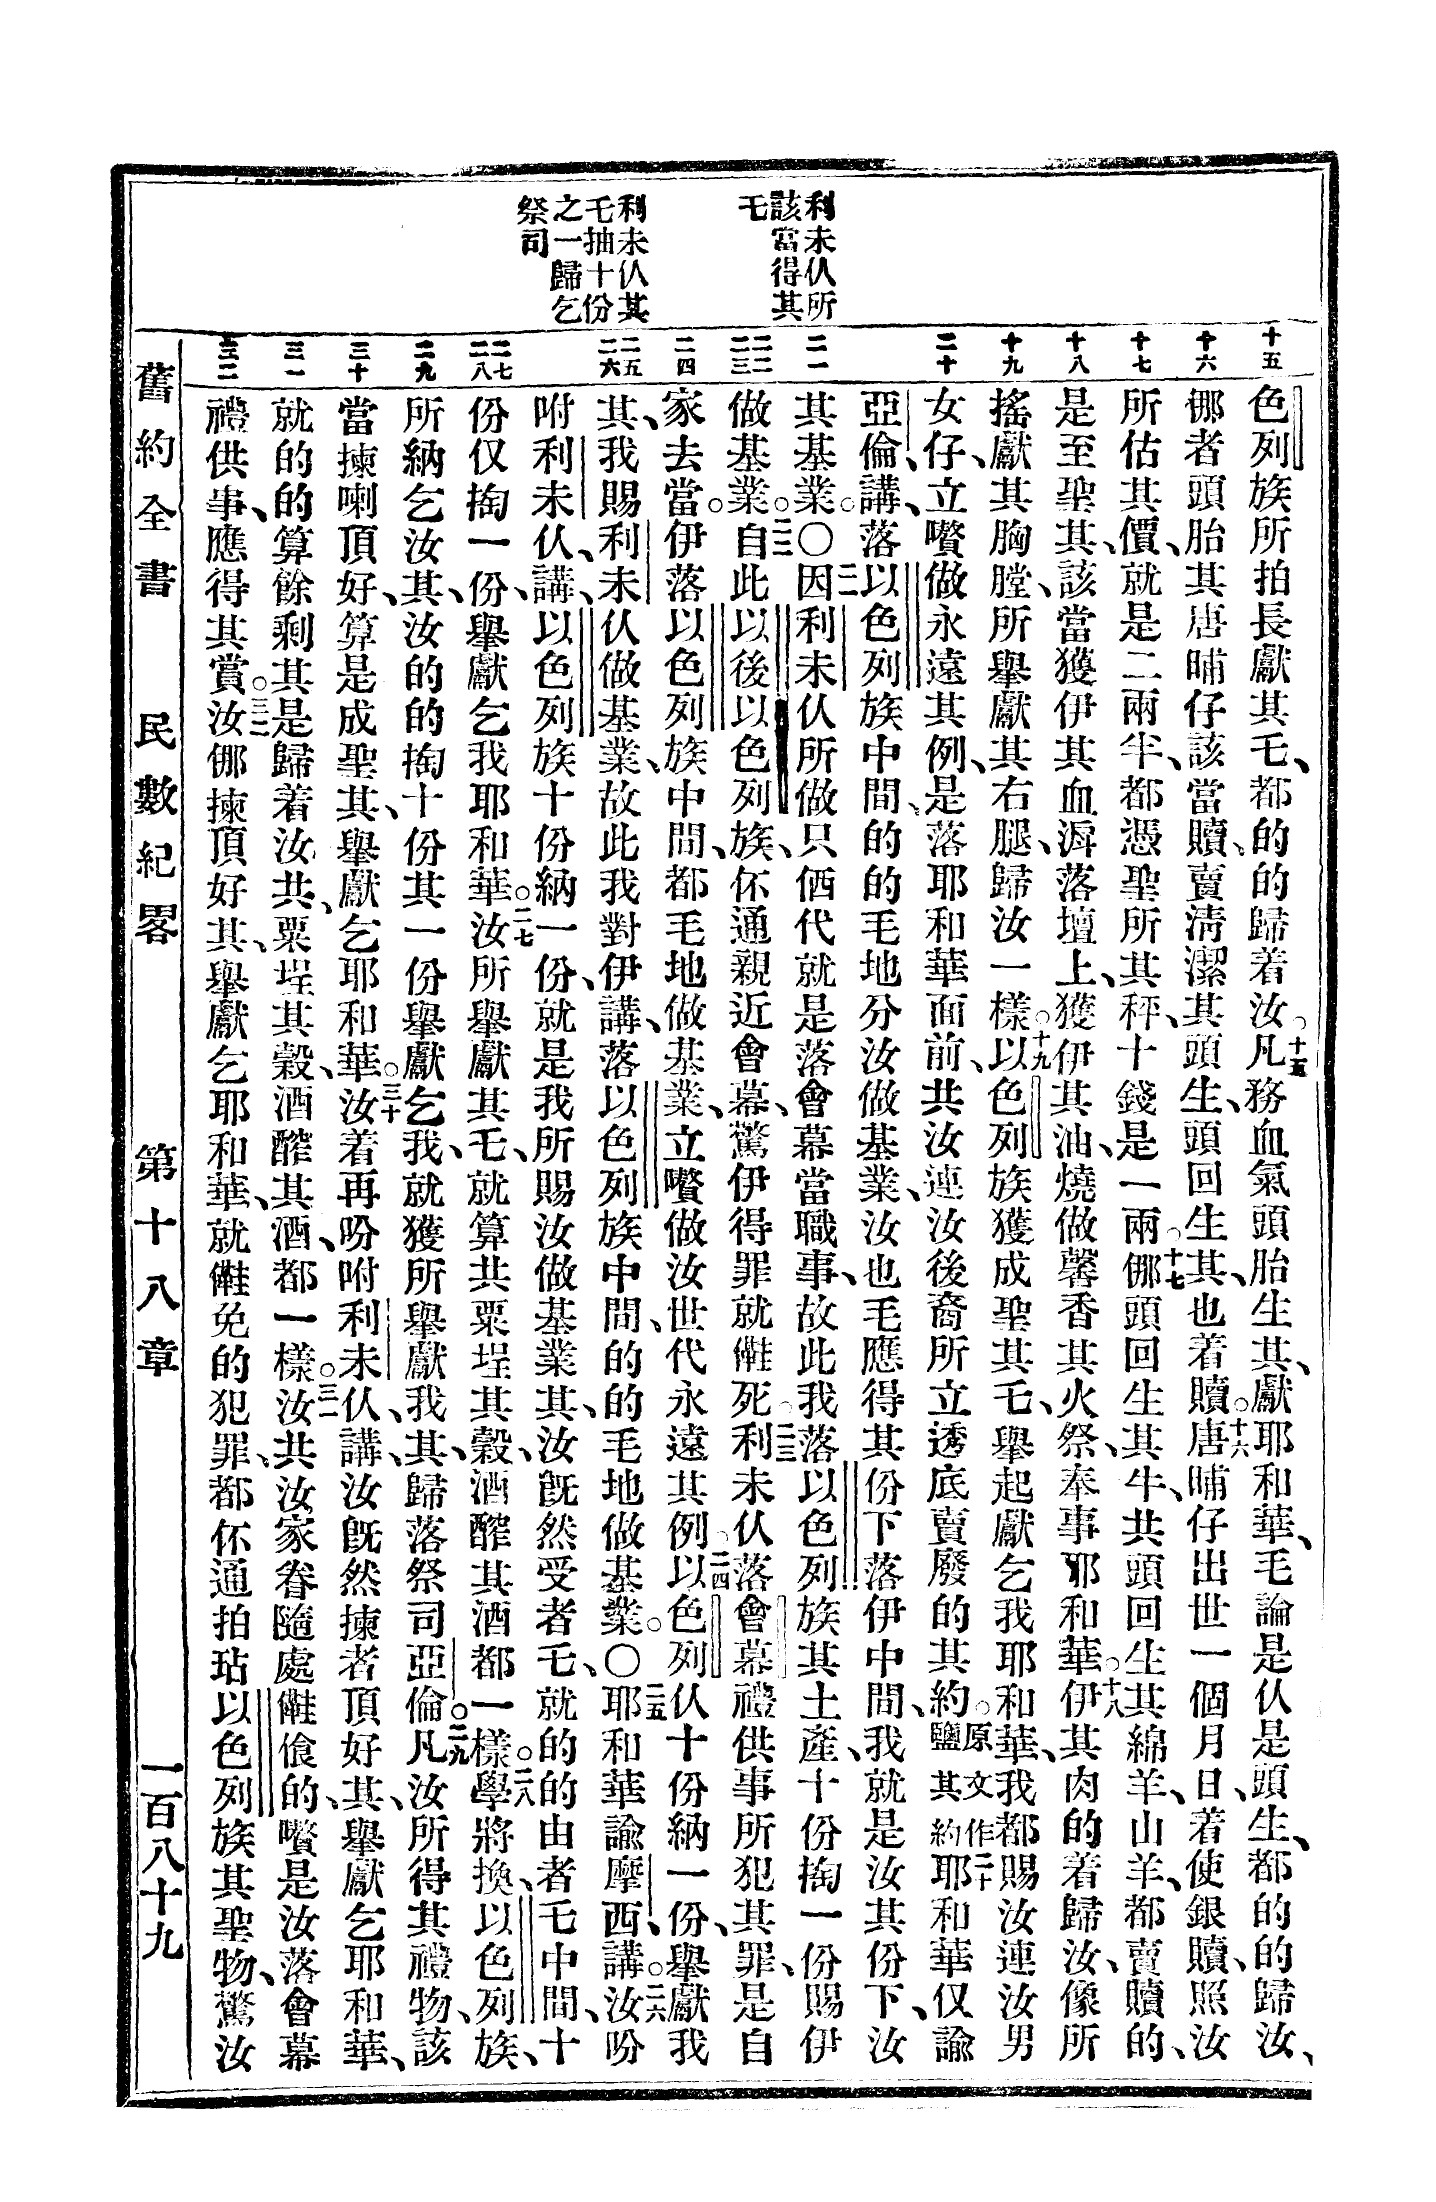 利未仈所
該當得其
乇
利未仈其
乇抽十份
之一歸乞
祭司
十五
十六
十七
十八
十九
二十
二一
二二
二三
二四
二五
二六
二七
二八
二九
三十
三一
三二
色列族所拍長獻其乇、都的的歸着汝。十五凡務血氣頭胎生其、獻耶和華、毛論是仈是頭生、都的的歸汝、
挪者頭胎其唐晡仔該當贖、賣淸潔其頭生、頭回生其、也着贖。十六唐晡仔出世一個月日、着使銀贖、照汝
所估其價、就是二兩半、都憑聖所其秤、十錢是一兩。十七挪頭回生其牛、共頭回生其綿羊、山羊、都賣贖的、
是至聖其、該當獲伊其血漘落壇上、獲伊其油、燒做馨香其火祭、奉事耶和華。十八伊其肉的着歸汝、像所
搖獻其胸膛、所舉獻其右腿、歸汝一樣。十九以色列族獲成聖其乇、舉起獻乞我耶和華、我都賜汝連汝男
女仔、立嚽做永遠其例、是落耶和華面前、共汝連汝後裔所立透底賣廢的其約。原文作鹽其約二十耶和華仅諭
亞倫、講、落以色列族中間、的的毛地分汝做基業、汝也毛應得其份下落伊中間、我就是汝其份下、汝
其基業。〇二一因利未仈所做只値代、就是落會幕當職事、故此我落以色列族其土產、十份掏一份賜伊
做基業。二二自此以後以色列族、伓通親近會幕、驚伊得罪就𣍐死。二三利未仈落會幕禮供事、所犯其罪、是自
家去當、伊落以色列族中間、都毛地做基業、立嚽做汝世代永遠其例。二四以色列仈十份納一份、舉獻我
其、我賜利未仈做基業、故此我對伊講、落以色列族中間、的的毛地做基業。〇二五耶和華諭摩西、講。二六汝吩
咐利未仈、講、以色列族十份納一份、就是我所賜汝做基業其、汝旣然受者乇、就的的由者乇中間、十
份仅掏一份、舉獻乞我耶和華。二七汝所舉獻其乇、就算共粟埕其穀、酒醡其酒都一樣。二八學將換、以色列族、
所納乞汝其、汝的的掏十份其一份舉獻乞我、就獲所舉獻我其、歸落祭司亞倫。二九凡汝所得其禮物、該
當揀喇頂好、算是成聖其、舉獻乞耶和華。三十汝着再吩咐利未仈、講、汝旣然揀者頂好其、舉獻乞耶和華、
就的的算餘剩其、是歸着汝、共粟埕其穀、酒醡其酒、都一樣。三一汝共汝家眷隨處𣍐飡的、嚽是汝落會幕
禮供事、應得其賞。三二汝挪揀頂好其、舉獻乞耶和華、就𣍐免的犯罪、都伓通拍玷以色列族其聖物、驚汝
舊約全書　民數紀畧　第十八章　一百八十九